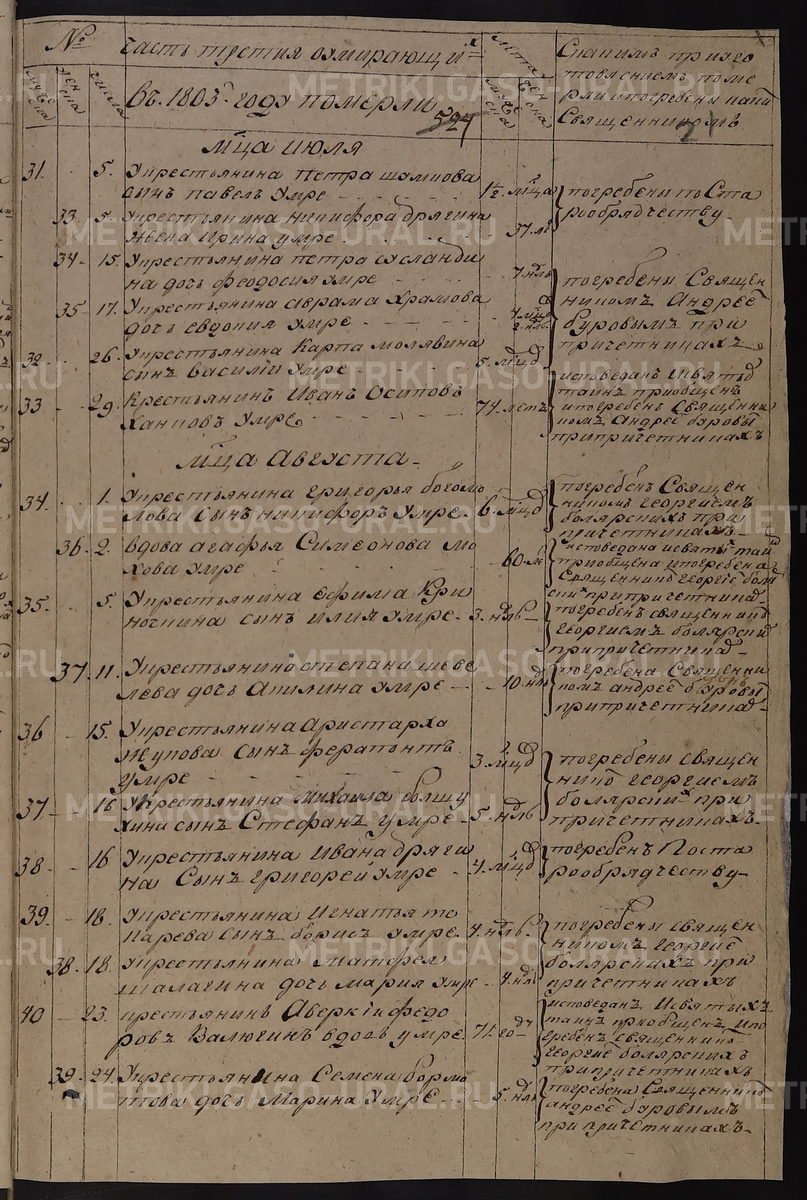 № часть третия о умирающих лета Сколькимъ приуго
мужеска женска числа въ 1803 году померли мужеска женска товлениемъ поме
527 рли и погребены каким
Священникомъ
21
мца июля
31. 5. У крестьянина петра шампова
сынъ павелъ умре 1½ мца погребены по Ста
рообрядчеству
33. 5. У крестьянина никифора дрягина
жена ирина умре 37. ле
34. 15. У крестьянина петра сусланди
на дочь феодосия умре 7. нль погребены Священ
никомъ Андрее
Буровымъ при
причетникахъ
35. 17. У крестьянина аврама храмова
дочь евдокия умре 4. мца
2. нль
32. 26. У крестьянина Карпа молявина
сынъ василий умре 5. мцд
33 29. Крестьянинъ Иванъ Осиповъ
Ханповъ умре 74. летъ исповеданъ и святыд
таинъ приобщенъ
и погребенъ Священни
комъ Андрее буровы
при причетникахъ
мца Августа
34. 1. У крестьянина григорья богомо
лова Сынъ никифоръ умре 6. мцд погребенъ Священ
никомъ георгиемъ
болярскихъ при
причетникахъ
36. 2. вдова агафья Симеонова мо
хова умре 60. ле исповедана и святых таин
приобщена и погребена
Священнико георгие боля
ски при причетника
35. 5. У крестьянина ефима Кри
ночкина сынъ илия умре 3. нль погребенъ священник
георгиемъ болярски
при причетника
37. 11. У крестьянина степана шеве
лева дочь Акилина умре 10. нль погребена Священни
комъ андрее буровы
при причетника
36 15. У крестьянина Аристарха
жукова сынъ ферапонтъ
умре 3. мцд погребены священ
нико георгиемъ
болярски при
причетникахъ
37 16 У крестьянина михаила болшу
хини сынъ Стефанъ умре 5. нль
38 16 У крестьянина Ивана дряги
на Сынъ григорей умре 4. мцд погребенъ По ста
рообрядчеству
39. 18. У крестьянина Игнатья то
карева сынъ борисъ умре 4. нль погребены священ
никомъ георгие
болярскихъ при
причетникахъ
38. 18. У крестьянина матфея
шалагина дочь мария умре 4. нль
40 23. крестьянинъ Аверкий федо
ровъ Валюгинъ вдовъ умре 71. год исповеданъ И святыхъ
таинъ приобщенъ и по
гребенъ священнико
георгие болярских
при причетникахъ
39. 24. У крестьянина Семена бормо
това дочь Марина умре 5. нль погребена Священник
андрее буровымъ
при причетникахъ
METRIKI.GASOURAL.RU